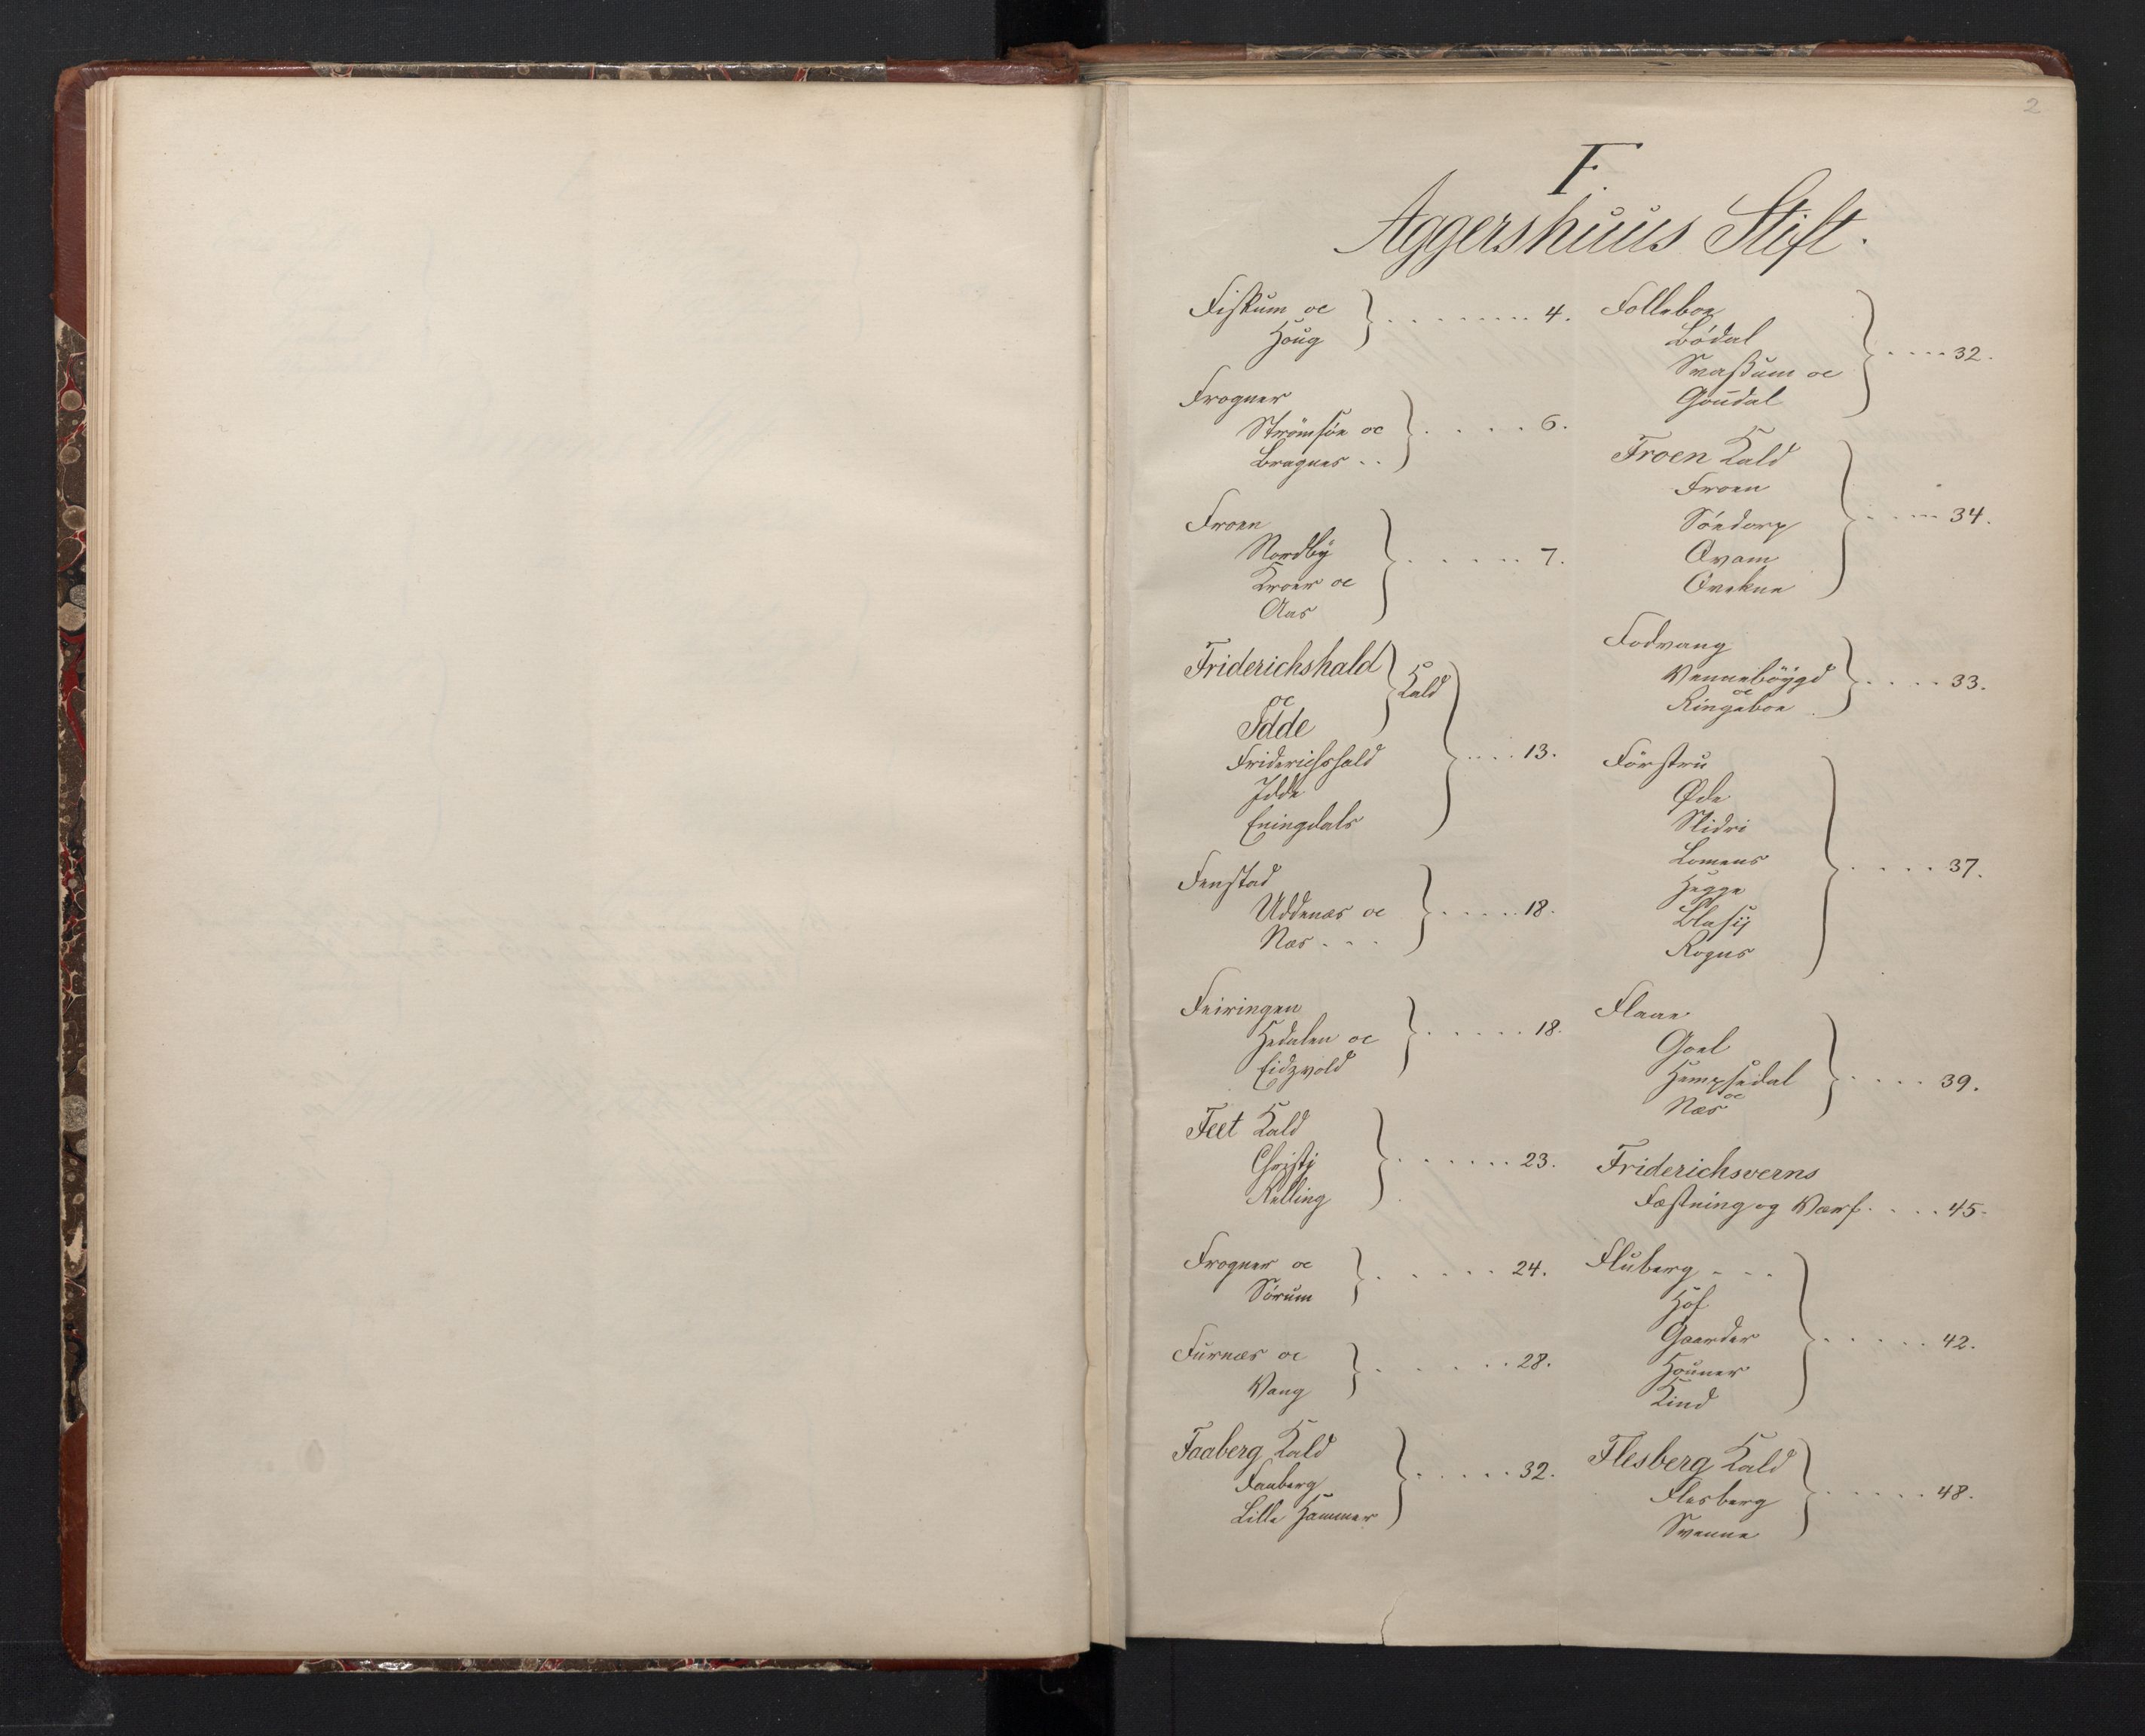 2
F.
Aggershuus Stift.
Fiskum oc
Houg
4.
Frogner
Strömsöe oc
Bragnes
6.
Froen
Nordby
Kroer oc
Aas
7.
Friderichshald
oc
Idde
Kald
Friderichshald
Idde
Eningdals
13.
Fenstad
Uddenæs oc
Næs
18.
Feiringen
Hedalen oc
Eidzvold
18.
Feet Kald
Christi
Rælling
23.
Frogner oc
Sørum
24.
Furnæs oc
Vang
28.
Faaberg Kald
Faaberg
Lille Hammer
32.
Folleboe
Bödal
Svassum oc
Goudal
32.
Froen Kald
Froen
Södorp
Qvam
Qvikne
34.
Fodvang
Vennebøygd
oc
Ringeboe
33.
Förstru
Øde
Slidri
Lomens
Hegge
Rogns
37.
Flaae
Goel
Hempsedal
oc
Næs
39.
Friderichsverns
Fæstning og Værf
45.
Fluberg
Hof
Gaarder
Houner
Kind
42.
Flesberg Kald
Flesberg
Svenne
48.